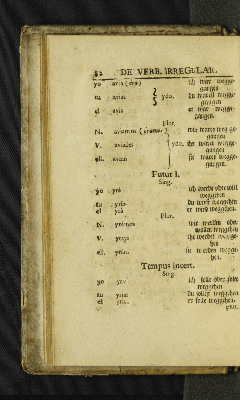 82 DE VERB. IRREGULAR.
yo avia (era) ich war wegge-
gangen
tu avias ydo. du warest wegge-
gangen
el avia er war wegge-
gangen.
Plur.
N. aviamos wir waren weg ge-
gangen
V. aviades ydo. ihr waret wegge-
gangen
ell. avian sie waren wegge-
gangen.
Futur I.
Sing.
yo yré ich werde oder will
weggehen
tu yrás du wirst weggehen
el yrá er wird weggehen.
Plur.
N. yrémos wir werden oder
wollen weggehen
V. yreys ihr werdet wegge-
hen
ell. yrán. sie werden wegge-
hen.
Tempus incert.
Sing.
yo ich solte oder
weggehen
tu du soltest weggehen
el er solte weggehen.